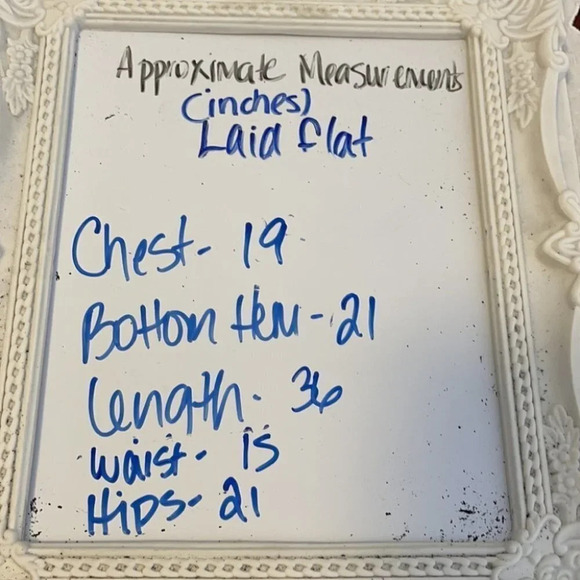 Approximate Measurements
(inches)
Laid flat
Chest- 19
Bottom Hem - 21
Length - 36
Waist - 15
Hips- 21